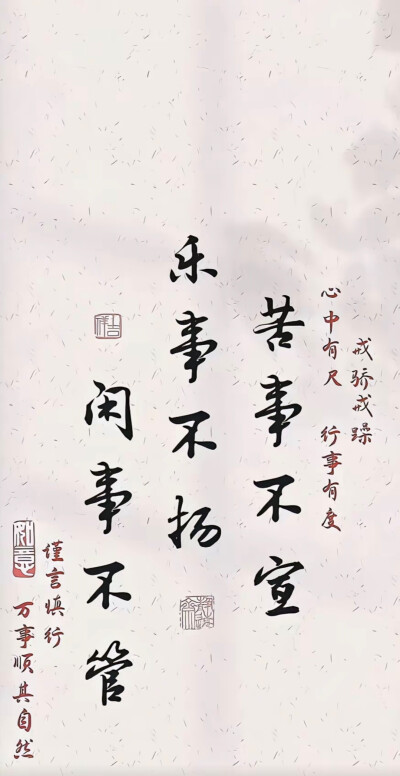 戒骄戒躁
心中有尺 行事有度
苦事不宣
乐事不扬
闲事不管
谨言慎行
万事顺其自然
如意